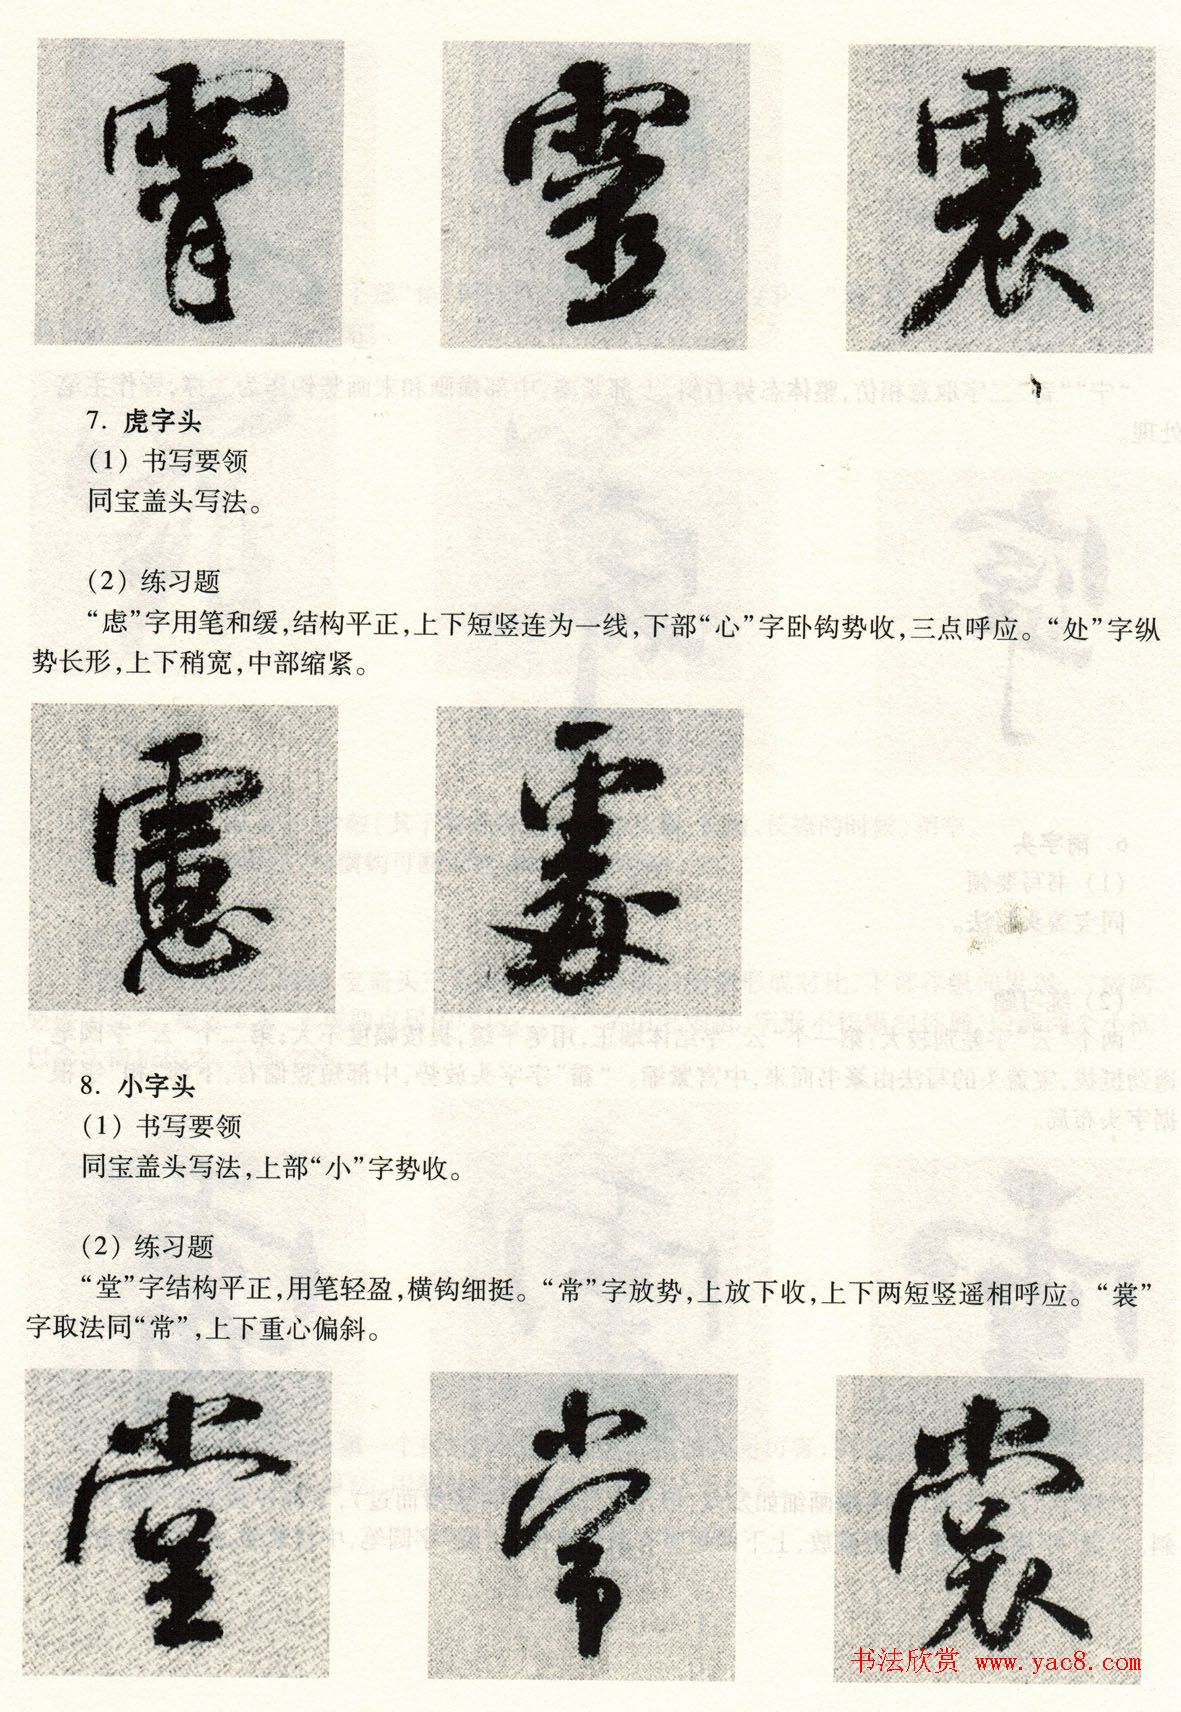 霄 靈 震
7. 虎字头
(1) 书写要领
同宝盖头写法。
(2) 练习题
“虑”字用笔和缓,结构平正,上下短竖连为一线,下部“心”字卧钩势收,三点呼应。“处”字纵
势长形,上下稍宽,中部缩紧。
慮 處
8. 小字头
(1) 书写要领
同宝盖头写法,上部“小”字势收。
(2) 练习题
“堂”字结构平正,用笔轻盈,横钩细挺。“常”字放势,上放下收,上下两短竖遥相呼应。“裳”
字取法同“常”,上下重心偏斜。
堂 常 裳
书法欣赏 www.yac8.com